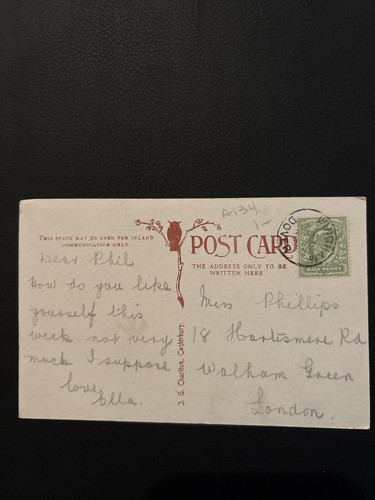 A134
1-
THIS SPACE MAY BE USED FOR INLAND
COMMUNICATION ONLY.
POST CARD
THE ADDRESS ONLY TO BE
WRITTEN HERE
DOVER
HALF PENNY
Dear Phil
How do you like
yourself this
week. not very
much I suppose
love
Ella.
J. G. Charlton, Canterbury.
Miss Phillips
18 Hartismere Rd
Walham Green
London.